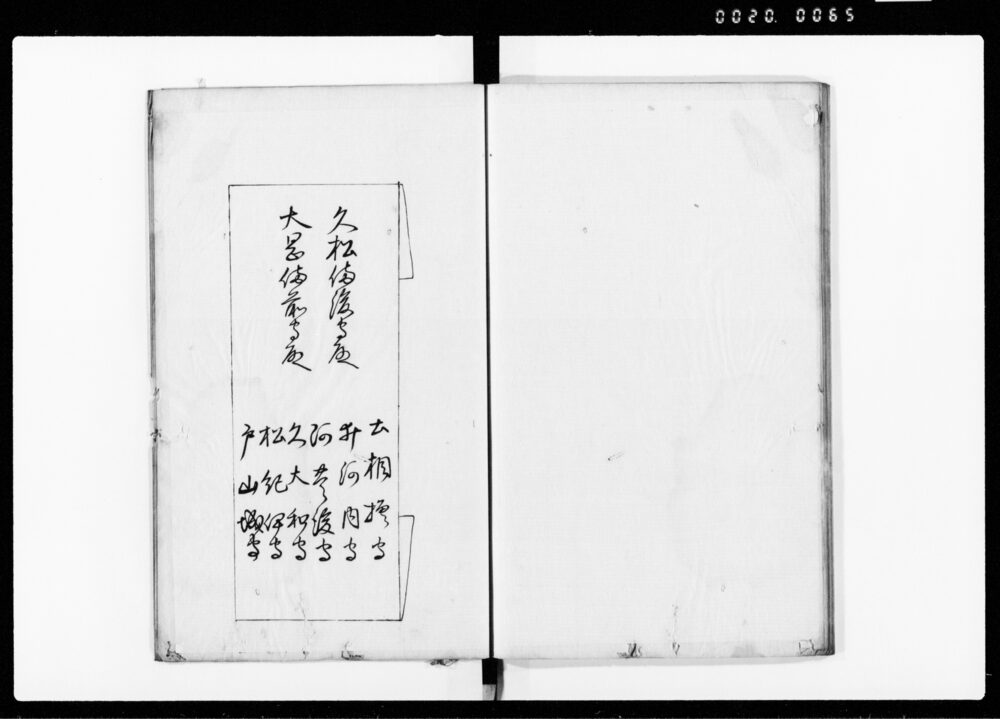 0020. 0065
久松備後守殿
大岡備前守殿
土相摸守
井河内守
阿豊後守
久大和守
松紀伊守
戸山城守